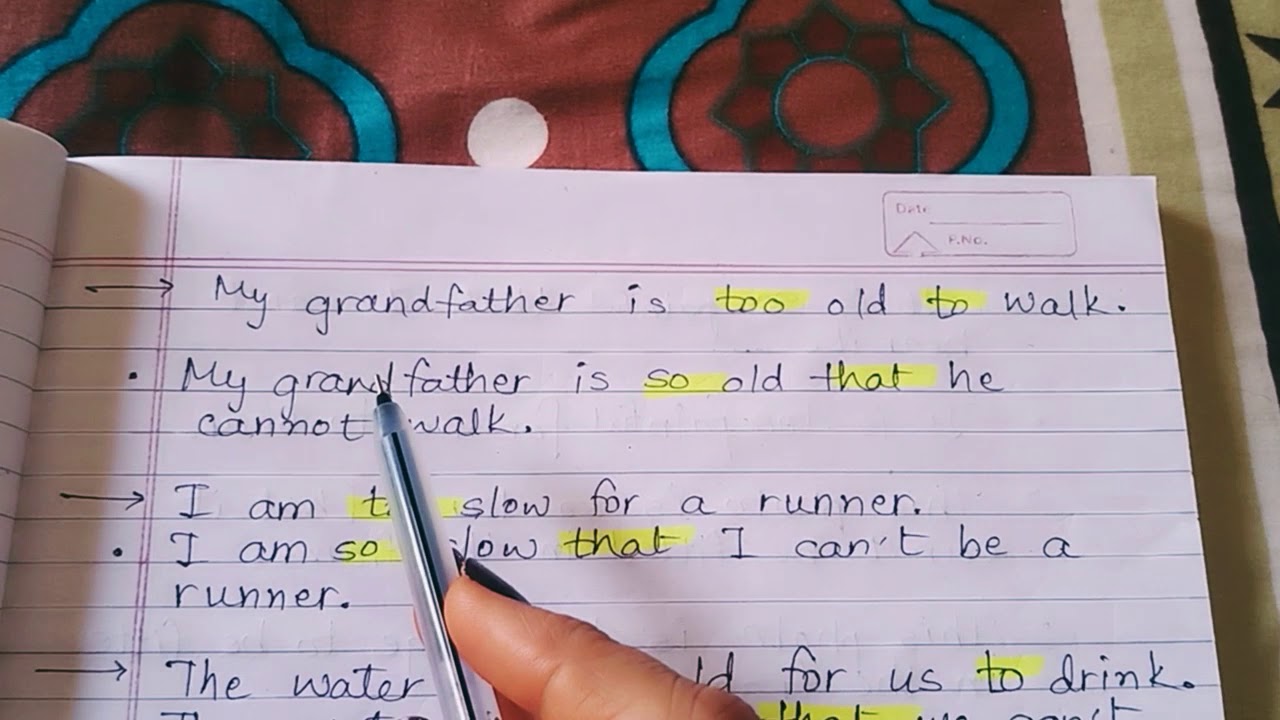 Date
P.No.
My grandfather is too old to walk.
My grandfather is so old that he
cannot walk.
I am slow for a runner.
I am so slow that I can't be a
runner.
The water for us to drink.
that we can't